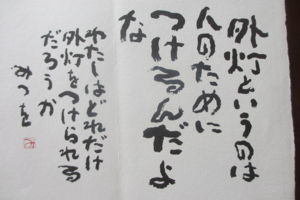 外灯というのは
人のために
つけるんだよ
な
わたしはどれだけ
外灯をつけられる
だろうか
みつを